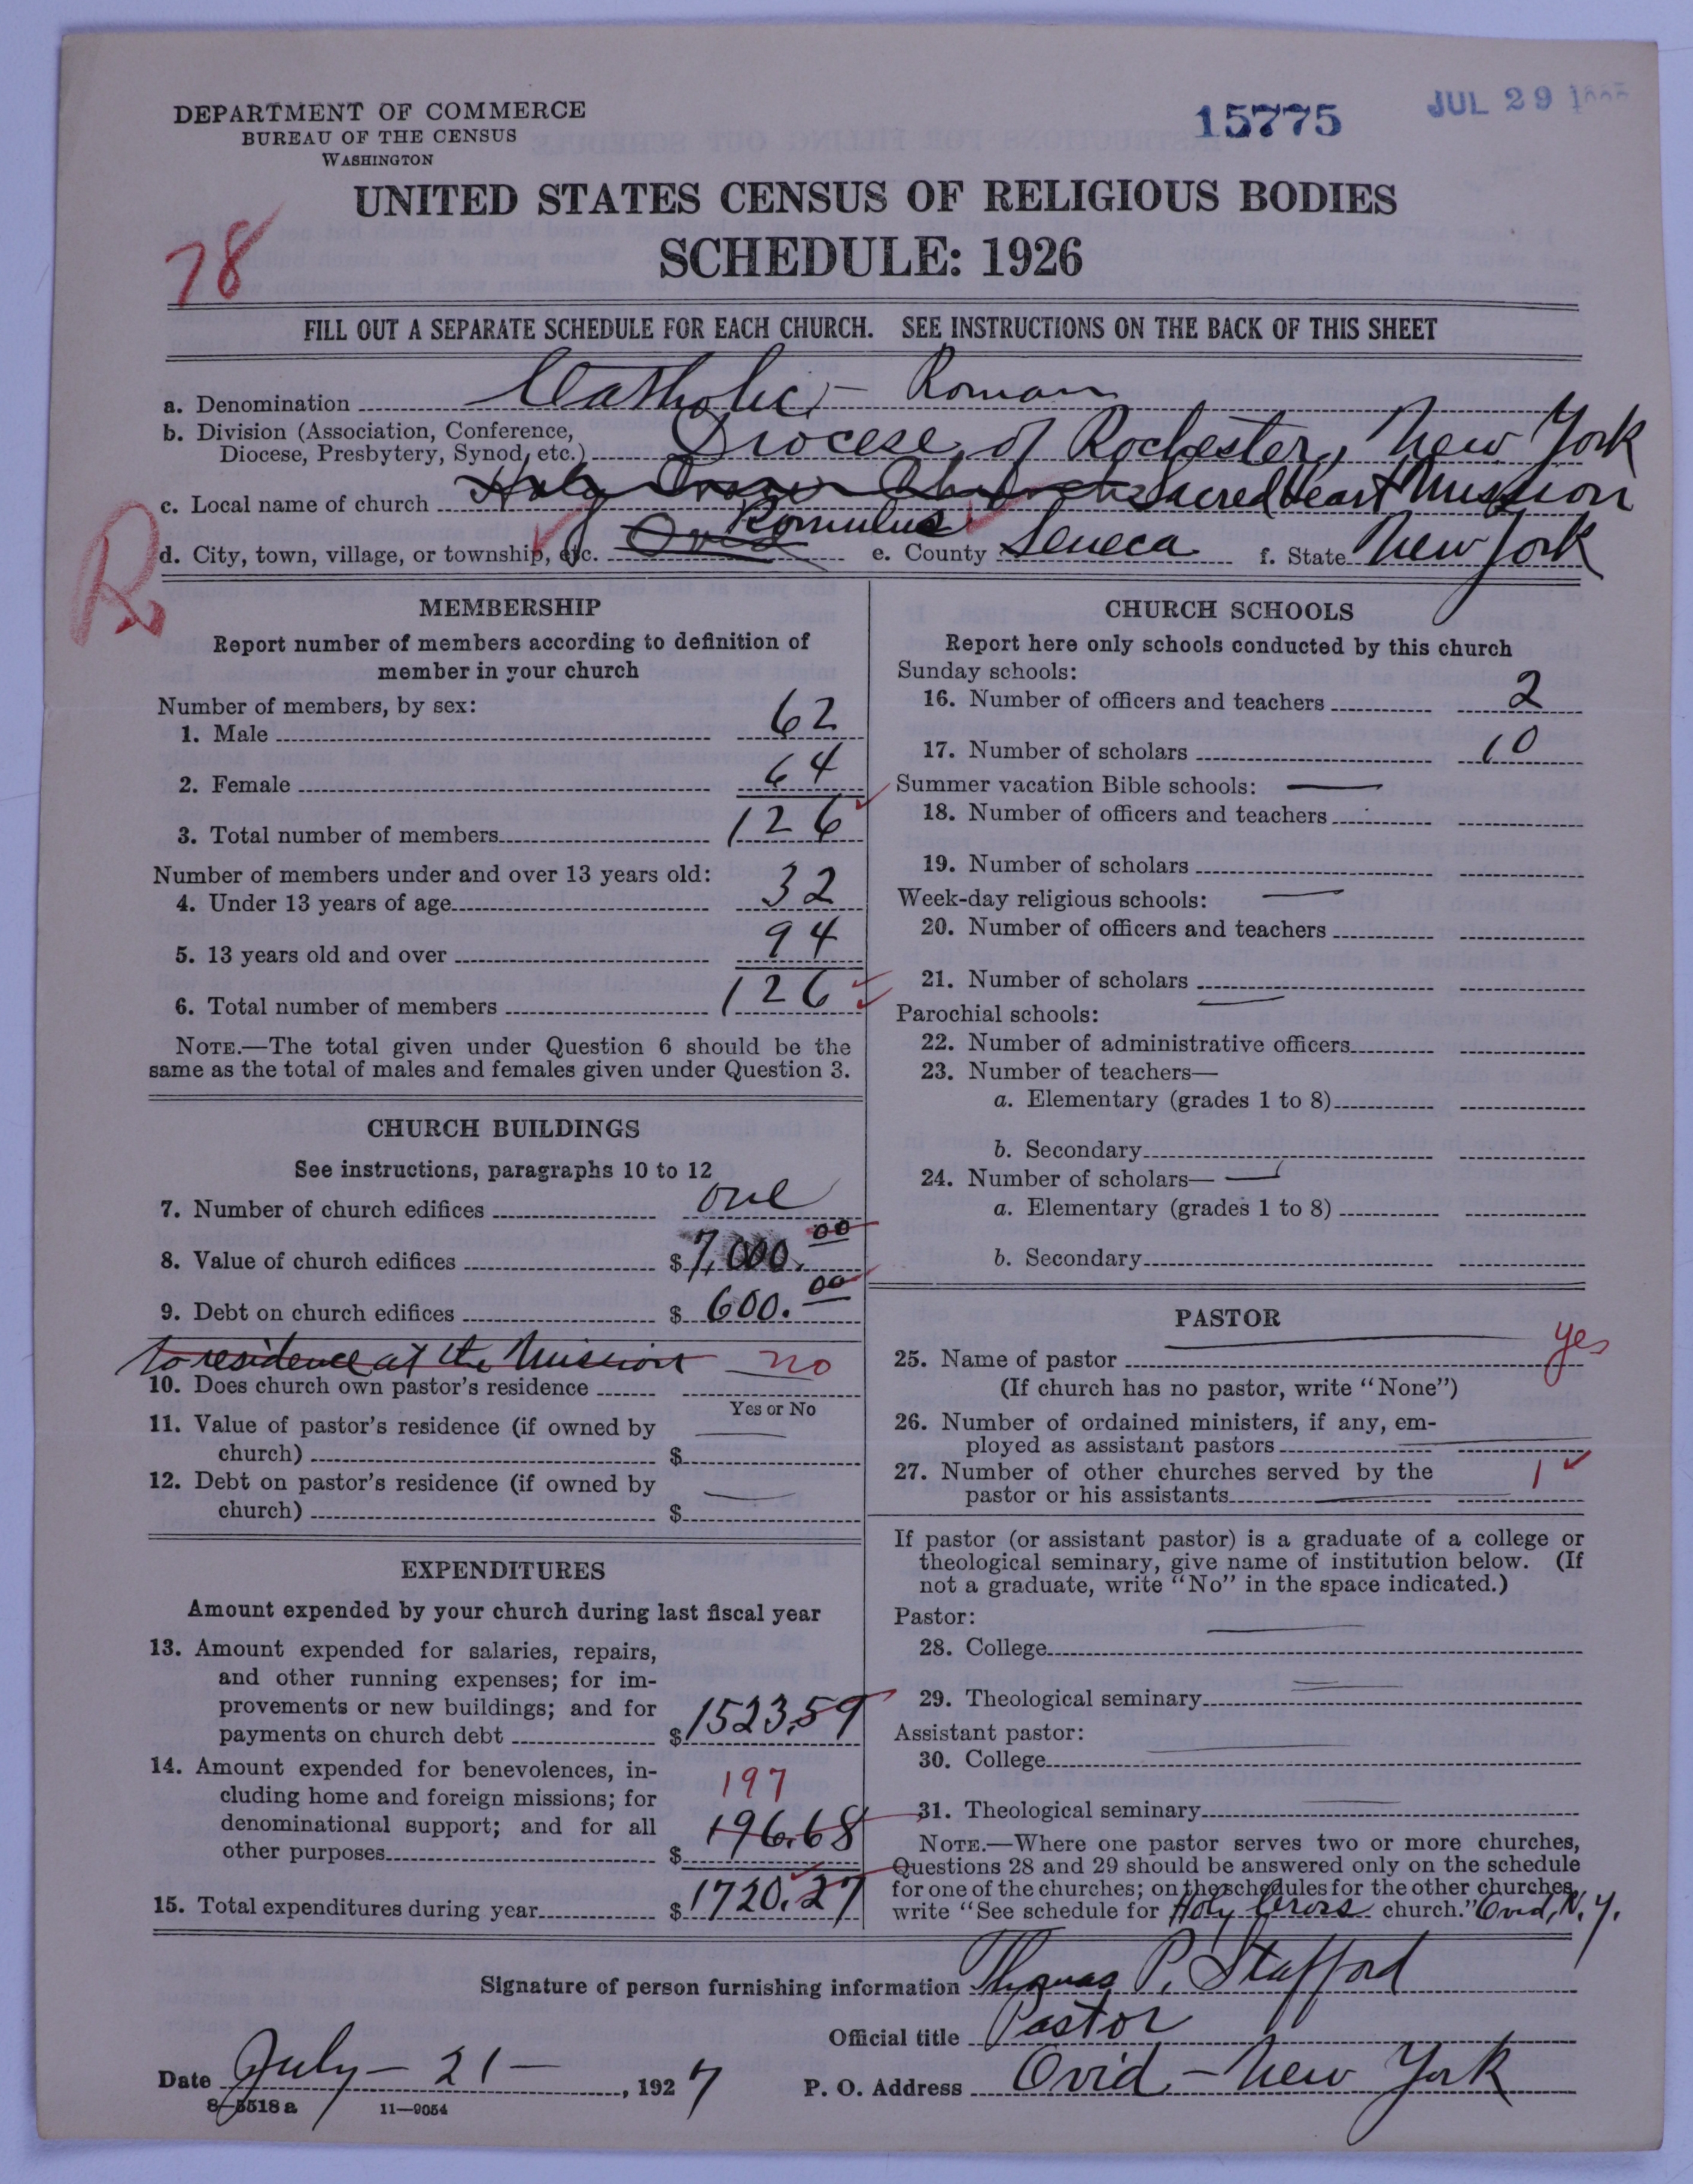 DEPARTMENT OF COMMERCE
BUREAU OF THE CENSUS
WASHINGTON
15775
JUL 29
UNITED STATES CENSUS OF RELIGIOUS BODIES
SCHEDULE: 1926
78
FILL OUT A SEPARATE SCHEDULE FOR EACH CHURCH. SEE INSTRUCTIONS ON THE BACK OF THIS SHEET
a. Denomination Catholic, - Roman
b. Division (Association, Conference,
Diocese, Presbytery, Synod, etc.) Diocese of Rochester, New York
c. Local name of church Holy Cross Church Sacred Heart Mission
d. City, town, village, or township, etc. Ovid Romulus e. County Seneca f. State New York
R
MEMBERSHIP
Report number of members according to definition of
member in your church
Number of members, by sex:
1. Male 62
2. Female 64
3. Total number of members 126
Number of members under and over 13 years old:
4. Under 13 years of age 32
5. 13 years old and over 94
6. Total number of members 126
NOTE.—The total given under Question 6 should be the
same as the total of males and females given under Question 3.
CHURCH BUILDINGS
See instructions, paragraphs 10 to 12
7. Number of church edifices one
8. Value of church edifices $7,000.00
9. Debt on church edifices $600.00
to residence at the Mission no
10. Does church own pastor's residence
Yes or No
11. Value of pastor's residence (if owned by
church) $ —
12. Debt on pastor's residence (if owned by
church) $ —
EXPENDITURES
Amount expended by your church during last fiscal year
13. Amount expended for salaries, repairs,
and other running expenses; for im-
provements or new buildings; and for
payments on church debt $1523.59
14. Amount expended for benevolences, in-
cluding home and foreign missions; for 197
denominational support; and for all
other purposes $ 196.68
15. Total expenditures during year $1720.27
CHURCH SCHOOLS
Report here only schools conducted by this church
Sunday schools:
16. Number of officers and teachers 2
17. Number of scholars 10
Summer vacation Bible schools: —
18. Number of officers and teachers
19. Number of scholars
Week-day religious schools: —
20. Number of officers and teachers
21. Number of scholars
Parochial schools: —
22. Number of administrative officers
23. Number of teachers—
a. Elementary (grades 1 to 8)
b. Secondary
24. Number of scholars— —
a. Elementary (grades 1 to 8)
b. Secondary
PASTOR
25. Name of pastor yes
(If church has no pastor, write "None")
26. Number of ordained ministers, if any, em-
ployed as assistant pastors
27. Number of other churches served by the
pastor or his assistants 1
If pastor (or assistant pastor) is a graduate of a college or
theological seminary, give name of institution below. (If
not a graduate, write "No" in the space indicated.)
Pastor:
28. College
29. Theological seminary
Assistant pastor:
30. College
31. Theological seminary
NOTE.—Where one pastor serves two or more churches,
Questions 28 and 29 should be answered only on the schedule
for one of the churches; on the schedules for the other churches,
write "See schedule for Holy Cross church." Ovid, N. Y.
Signature of person furnishing information Thomas P. Stafford
Official title Pastor
Date July - 21 - , 1927 P. O. Address Ovid - New York
8-5518a 11-9054